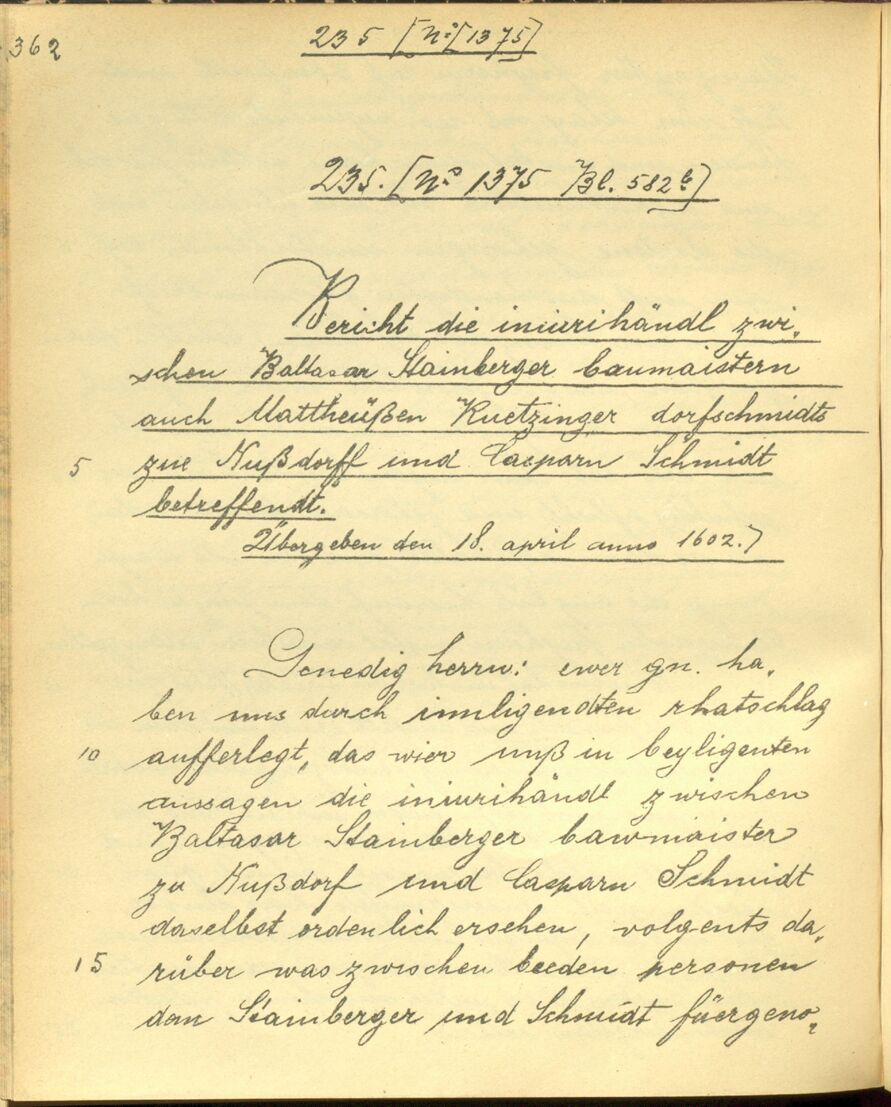 362
235 [No [1375]
235. [No 1375 Bl. 582b]
Bericht die iniurihändl zwi-
schen Baltasar Stainberger baumaistern
auch Mattheüßen Kuetzinger dorfschmidts
5 zue Nußdorff und Casparn Schmidt
betreffendt.
Übergeben den 18. april anno 1602.)
Genedig herrn: ewer gn. ha-
ben uns durch innligendten rhatschlag
10 aufferlegt, das wier unß in beyligenten
aussagen die iniurihändl zwischen
Baltasar Stainberger bawmaister
zu Nußdorf und Casparn Schmidt
daselbst ordenlich ersehen, volgents da-
15 rüber was zwischen beeden personen
dem Stainberger und Schmidt füergeno-